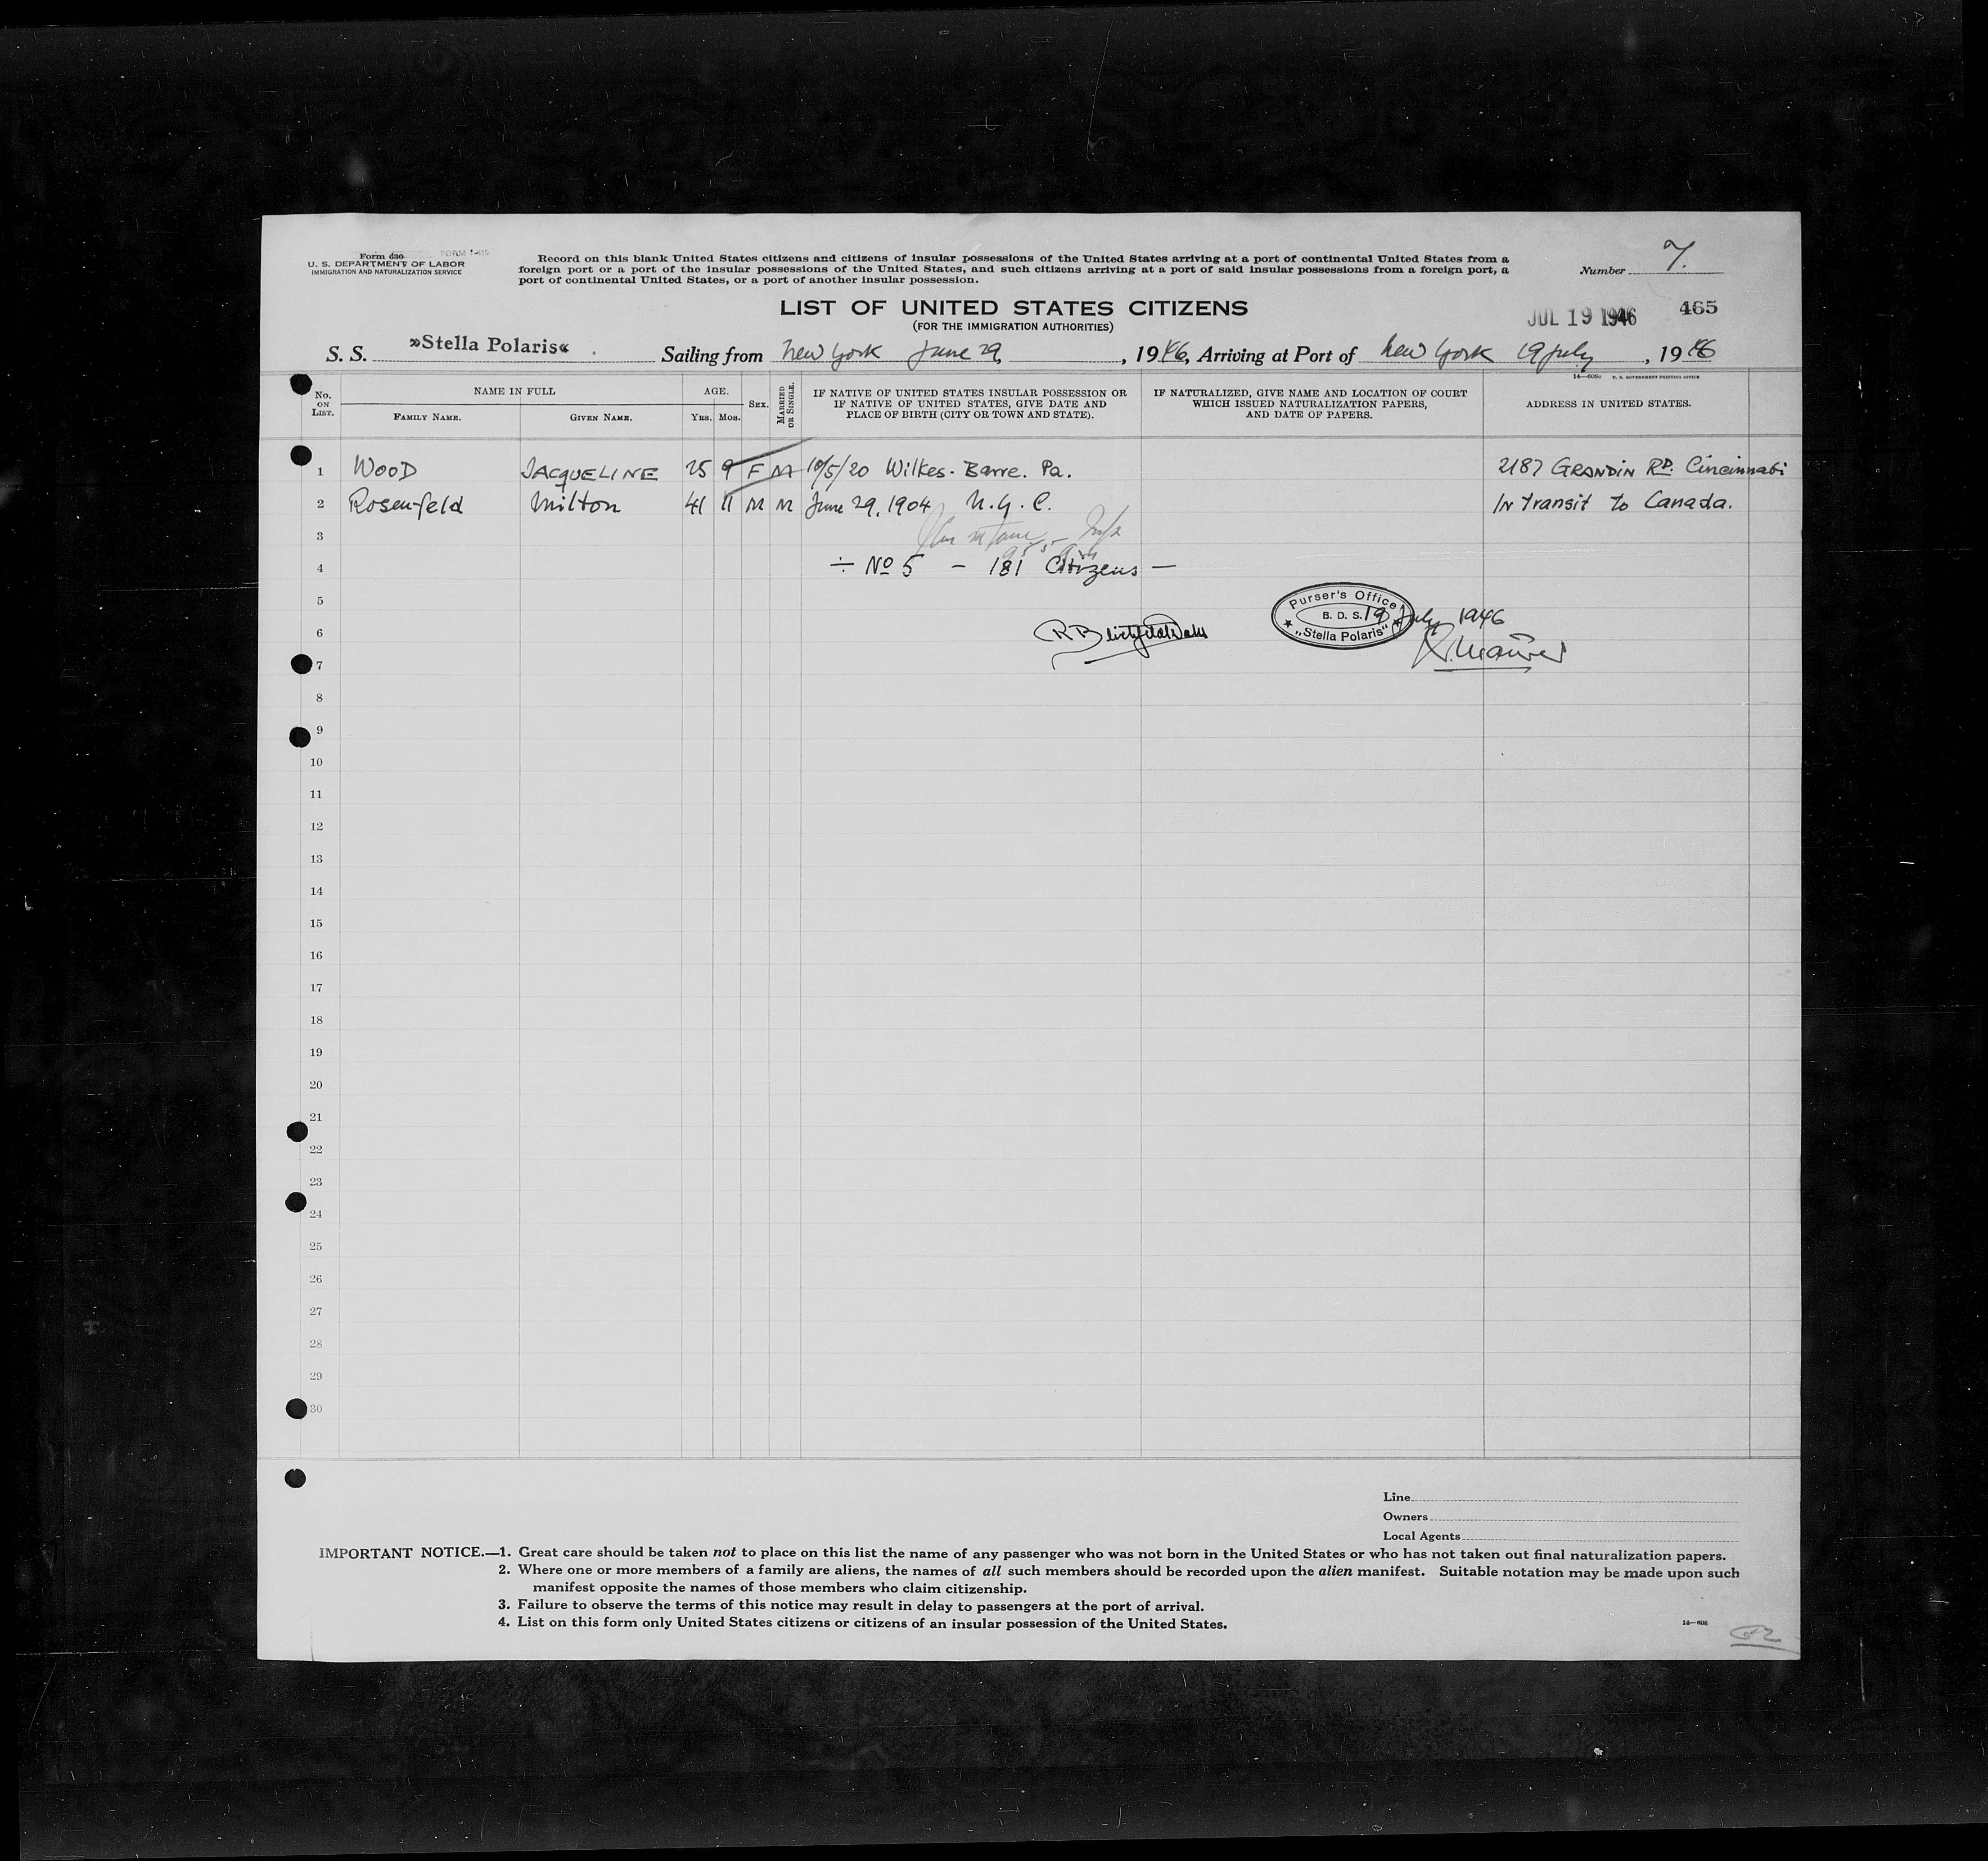 Form 430 FORM I-415
U. S. DEPARTMENT OF LABOR
IMMIGRATION AND NATURALIZATION SERVICE
Record on this blank United States citizens and citizens of insular possessions of the United States arriving at a port of continental United States from a
foreign port or a port of the insular possessions of the United States, and such citizens arriving at a port of said insular possessions from a foreign port, a
port of continental United States, or a port of another insular possession.
Number 7.
LIST OF UNITED STATES CITIZENS
(FOR THE IMMIGRATION AUTHORITIES)
JUL 19 1946 465
S. S. »Stella Polaris« Sailing from New York June 29, , 1946, Arriving at Port of New York 19 July , 1946
14—608c U. S. GOVERNMENT PRINTING OFFICE
No. ON LIST. NAME IN FULL AGE. SEX. MARRIED OR SINGLE. IF NATIVE OF UNITED STATES INSULAR POSSESSION OR IF NATIVE OF UNITED STATES, GIVE DATE AND PLACE OF BIRTH (CITY OR TOWN AND STATE). IF NATURALIZED, GIVE NAME AND LOCATION OF COURT WHICH ISSUED NATURALIZATION PAPERS, AND DATE OF PAPERS. ADDRESS IN UNITED STATES.
FAMILY NAME. GIVEN NAME. YRS. MOS.
1 WOOD JACQUELINE 25 9 F M 10/5/20 Wilkes-Barre. Pa. 2187 GRANDIN RD. Cincinnati
2 Rosenfeld Milton 41 11 M M June 29, 1904 N.Y.C. In transit to Canada.
3
4 ÷ No 5 – 181 Citizens –
5
Purser's Office
B. D. S. 19 July 1946
„Stella Polaris"
6
7
8
9
10
11
12
13
14
15
16
17
18
19
20
21
22
23
24
25
26
27
28
29
30
Line
Owners
Local Agents
IMPORTANT NOTICE.—1. Great care should be taken not to place on this list the name of any passenger who was not born in the United States or who has not taken out final naturalization papers.
2. Where one or more members of a family are aliens, the names of all such members should be recorded upon the alien manifest. Suitable notation may be made upon such
manifest opposite the names of those members who claim citizenship.
3. Failure to observe the terms of this notice may result in delay to passengers at the port of arrival.
4. List on this form only United States citizens or citizens of an insular possession of the United States.
14—608